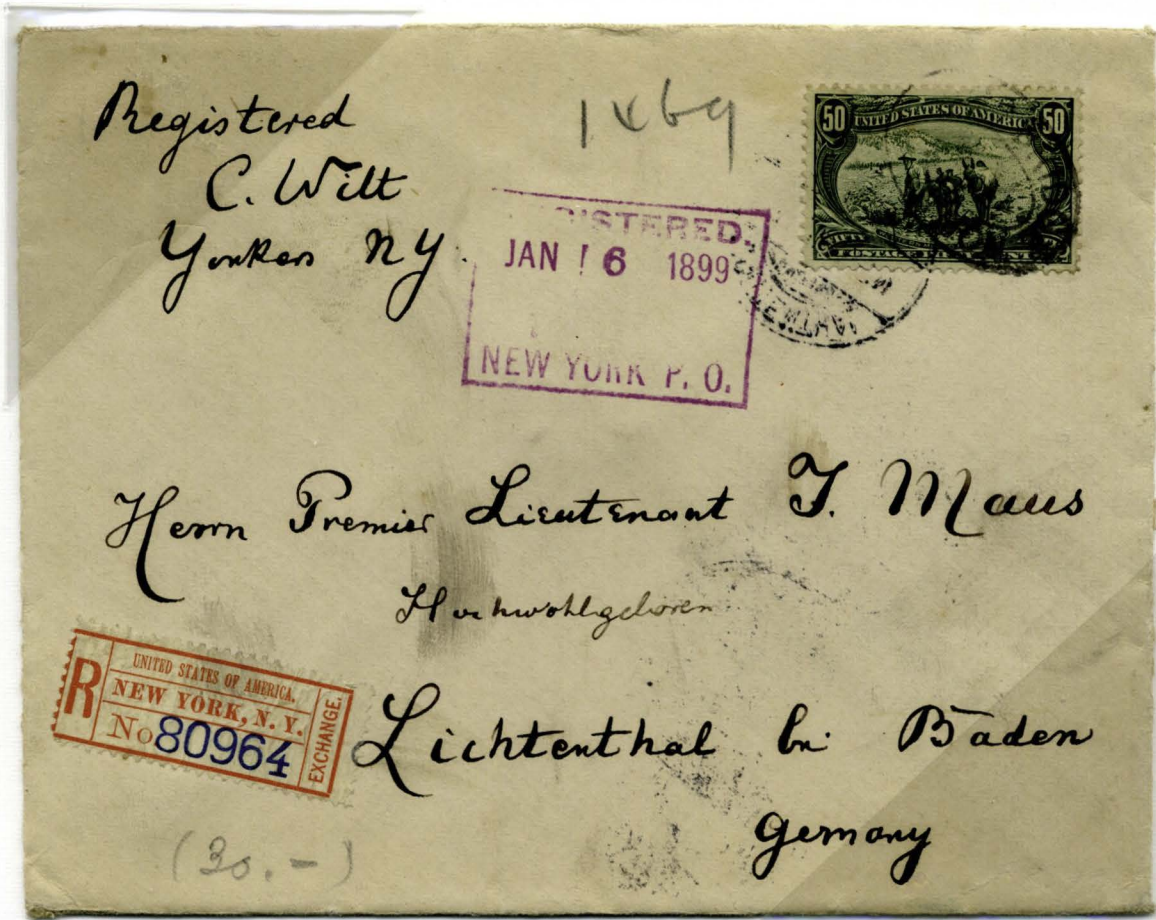 Registered
C. Witt
Yonkers NY.
1469
50 UNITED STATES OF AMERICA 50
REGISTERED.
JAN 16 1899
NEW YORK P. O.
Herrn Premier Lieutenant T. Maus
Hochwohlgeboren
R
UNITED STATES OF AMERICA.
NEW YORK, N. Y.
No 80964
EXCHANGE.
Lichtenthal bei Baden
Germany
(30.-)